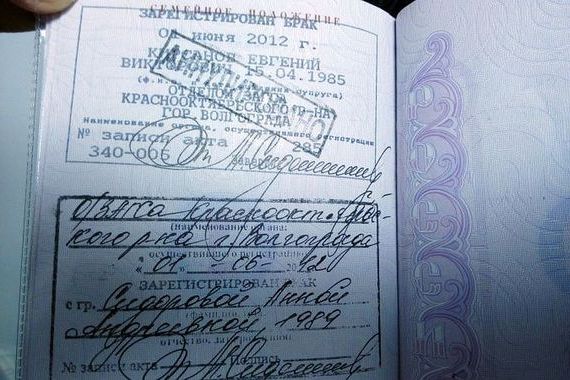 СЕМЕЙНОЕ ПОЛОЖЕНИЕ
ЗАРЕГИСТРИРОВАН БРАК
01 июня 2012 г.
ЕВГЕНИЙ
15.04.1985
супруга)
ОТДЕЛОМ
КРАСНООКТЯБРЬСКОГО Р-НА
ГОР. ВОЛГОГРАДА
Наименование органа, осуществившего регистрации
№ записи акта 285
340-006
О/ЗАГСа Краснооктябрьс-
(наименование органа:
кого р-на г. Волгограда
осуществившего регистрацию)
"01" 06 2012
ЗАРЕГИСТРИРОВАН БРАК
с гр. Сидоровой Анной
Андреевной, 1989
отчество, дата рождения)
№ записи акта Подпись